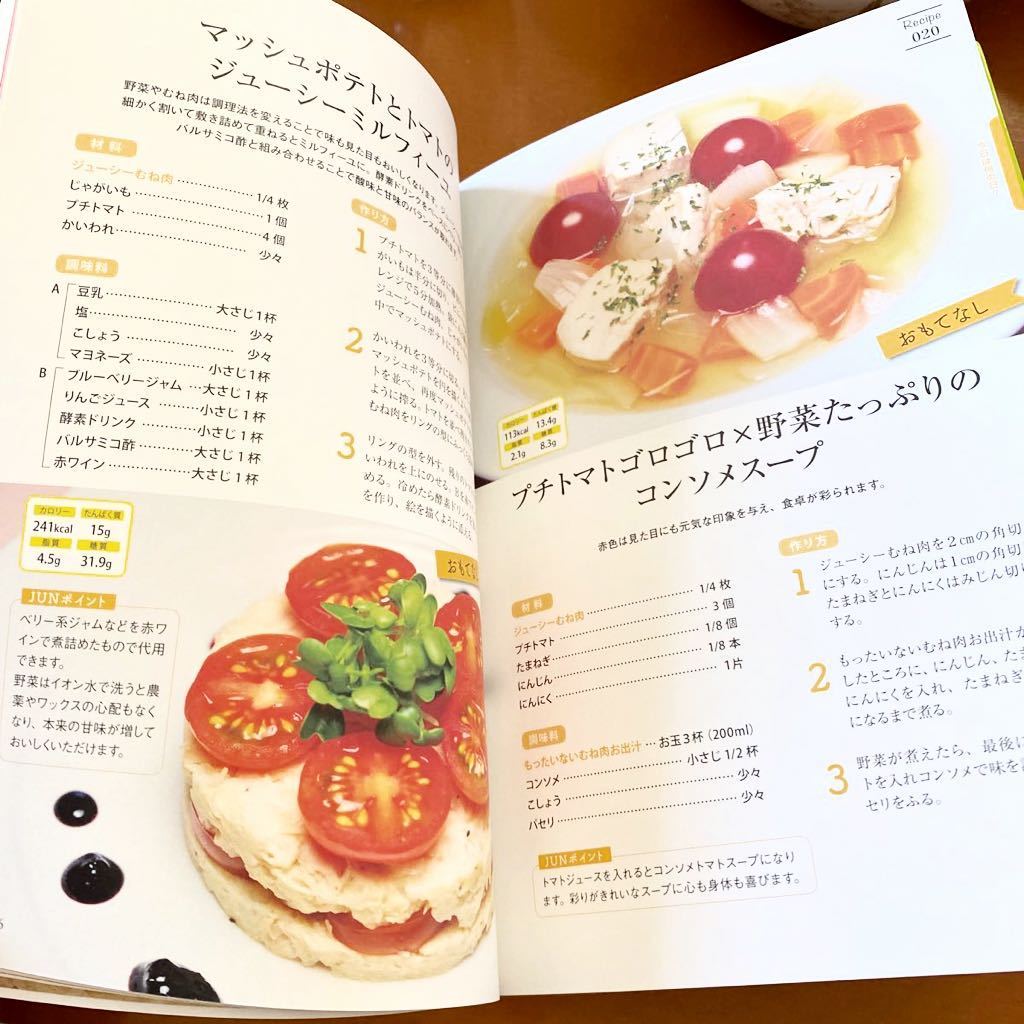 マッシュポテトとトマトの
ジューシーミルフィーユ
野菜やむね肉は調理法を変えることで味も見た目もおいしくなります。
細かく割いて敷き詰めて重ねるとミルフィーユに。酵素ドリンクを
バルサミコ酢と組み合わせることで酸味と甘味のバランスが
材料
ジューシーむね肉 1/4 枚
じゃがいも 1 個
プチトマト 4 個
かいわれ 少々
調味料
A 豆乳 大さじ1杯
塩 少々
こしょう 少々
マヨネーズ 小さじ1杯
B ブルーベリージャム 大さじ1杯
りんごジュース 小さじ1杯
酵素ドリンク 小さじ1杯
バルサミコ酢 大さじ1杯
赤ワイン 大さじ1杯
作り方
1 プチトマトを3等分に
がいもは半分に
レンジで5分加熱
ジューシーむね肉、
中でマッシュポテトにする。
2 かいわれを3等分に
マッシュポテトを
トを並べ、再度マッシュ
ように搾る。トマトを
むね肉をリングの型に
3 リングの型を外す。
いわれを上にのせる。
める。冷めたら酵素ドリンク
を作り、絵を描くように
カロリー たんぱく質
241kcal 15g
脂質 糖質
4.5g 31.9g
JUNポイント
ベリー系ジャムなどを赤ワ
インで煮詰めたもので代用
できます。
野菜はイオン水で洗うと農
薬やワックスの心配もなく
なり、本来の甘味が増して
おいしくいただけます。
おもてなし
6
Recipe
020
おもてなし
カロリー たんぱく質
113kcal 13.4g
脂質 糖質
2.1g 8.3g
プチトマトゴロゴロ×野菜たっぷりの
コンソメスープ
赤色は見た目にも元気な印象を与え、食卓が彩られます。
材料
ジューシーむね肉 1/4 枚
プチトマト 3 個
たまねぎ 1/8 個
にんじん 1/8 本
にんにく 1片
調味料
もったいないむね肉お出汁 お玉3杯(200ml)
コンソメ 小さじ1/2 杯
こしょう 少々
パセリ 少々
作り方
1 ジューシーむね肉を2cmの角切
にする。にんじんは1cmの角切
たまねぎとにんにくはみじん切り
する。
2 もったいないむね肉お出汁が
したところに、にんじん、たま
にんにくを入れ、たまねぎ
になるまで煮る。
3 野菜が煮えたら、最後に
トを入れコンソメで味を
セリをふる。
JUNポイント
トマトジュースを入れるとコンソメトマトスープになり
ます。彩りがきれいなスープに心も身体も喜びます。